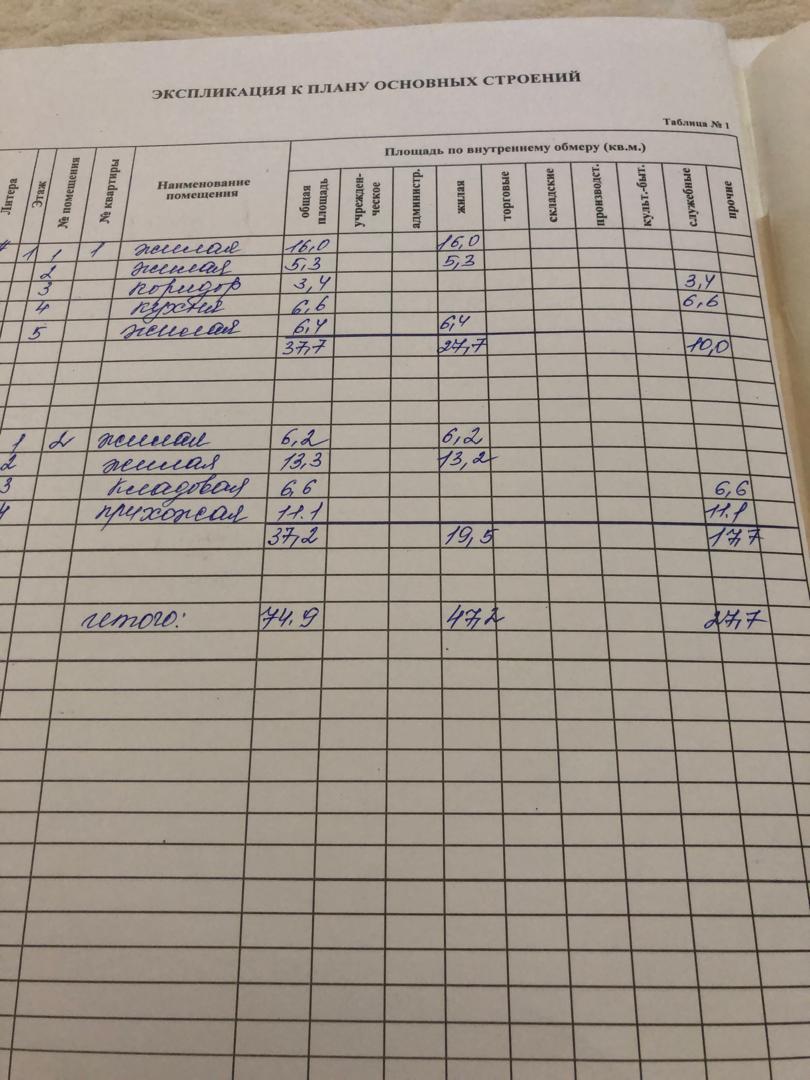 ЭКСПЛИКАЦИЯ К ПЛАНУ ОСНОВНЫХ СТРОЕНИЙ
Таблица № 1
Литера Этаж № помещения № квартиры Наименование помещения Площадь по внутреннему обмеру (кв.м.)
общая площадь учрежден-ческое администр. жилая торговые складские производст. культ.-быт. служебные прочие
1 1 1 жилая 16,0 16,0
2 жилая 5,3 5,3
3 коридор 3,4 3,4
4 кухня 6,6 6,6
5 жилая 6,4 6,4
37,7 27,7 10,0
1 2 жилая 6,2 6,2
2 жилая 13,3 13,2
3 кладовая 6,6 6,6
4 прихожая 11.1 11.1
37,2 19,5 17,7
итого: 74.9 47,2 27,7